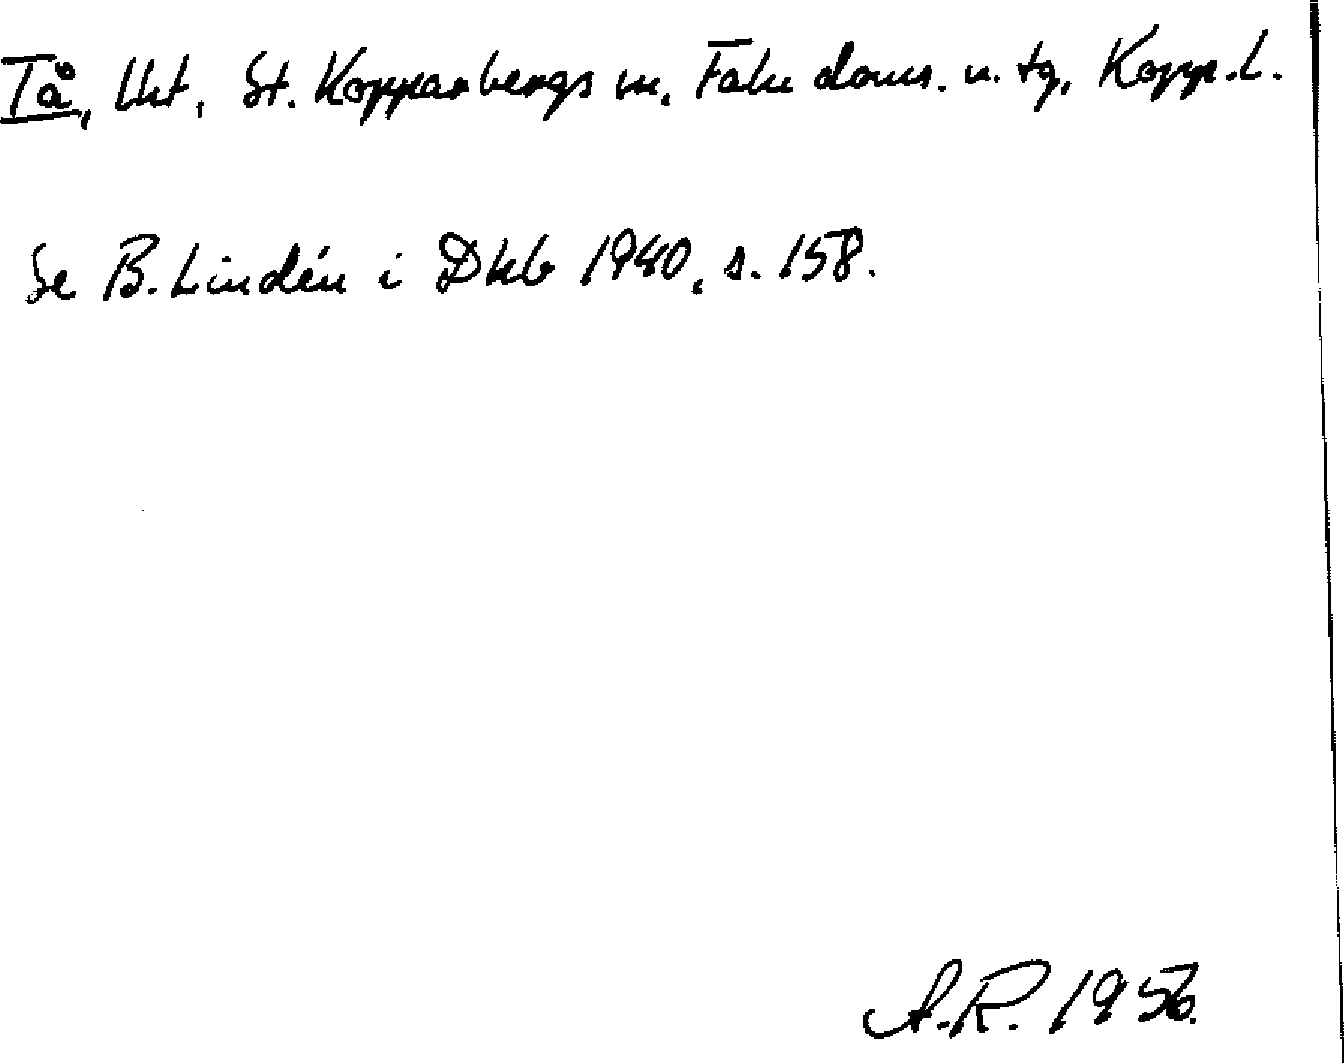 Tå, Utt, St. Kopparbergs sn, Falu doms. n. tg, Kopp.l.
Se B. Lindén i Dhb 1940, s. 158.
A.R. 1956.